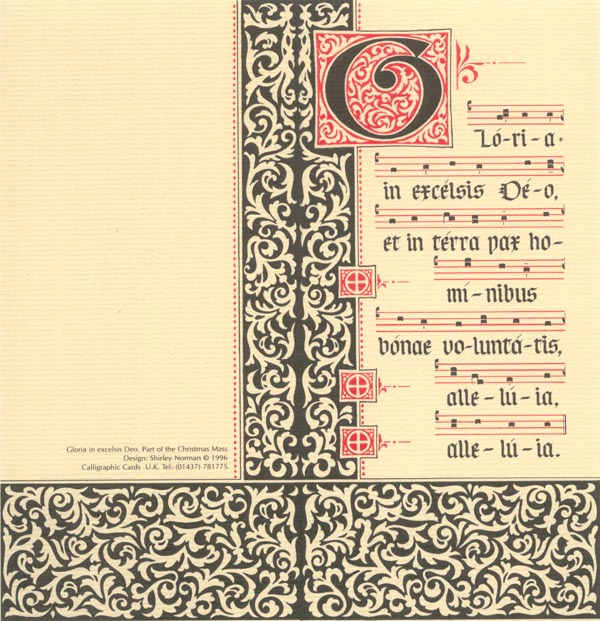 G
ló-ri-a
in excélsis Dé-o,
et in térra pax ho-
mí-nibus
bónae vo-luntá-tis,
alle-lú-ia,
alle-lú-ia.
Gloria in excelsis Deo. Part of the Christmas Mass
Design: Shirley Norman © 1996
Calligraphic Cards U.K. Tel: (01437) 781775